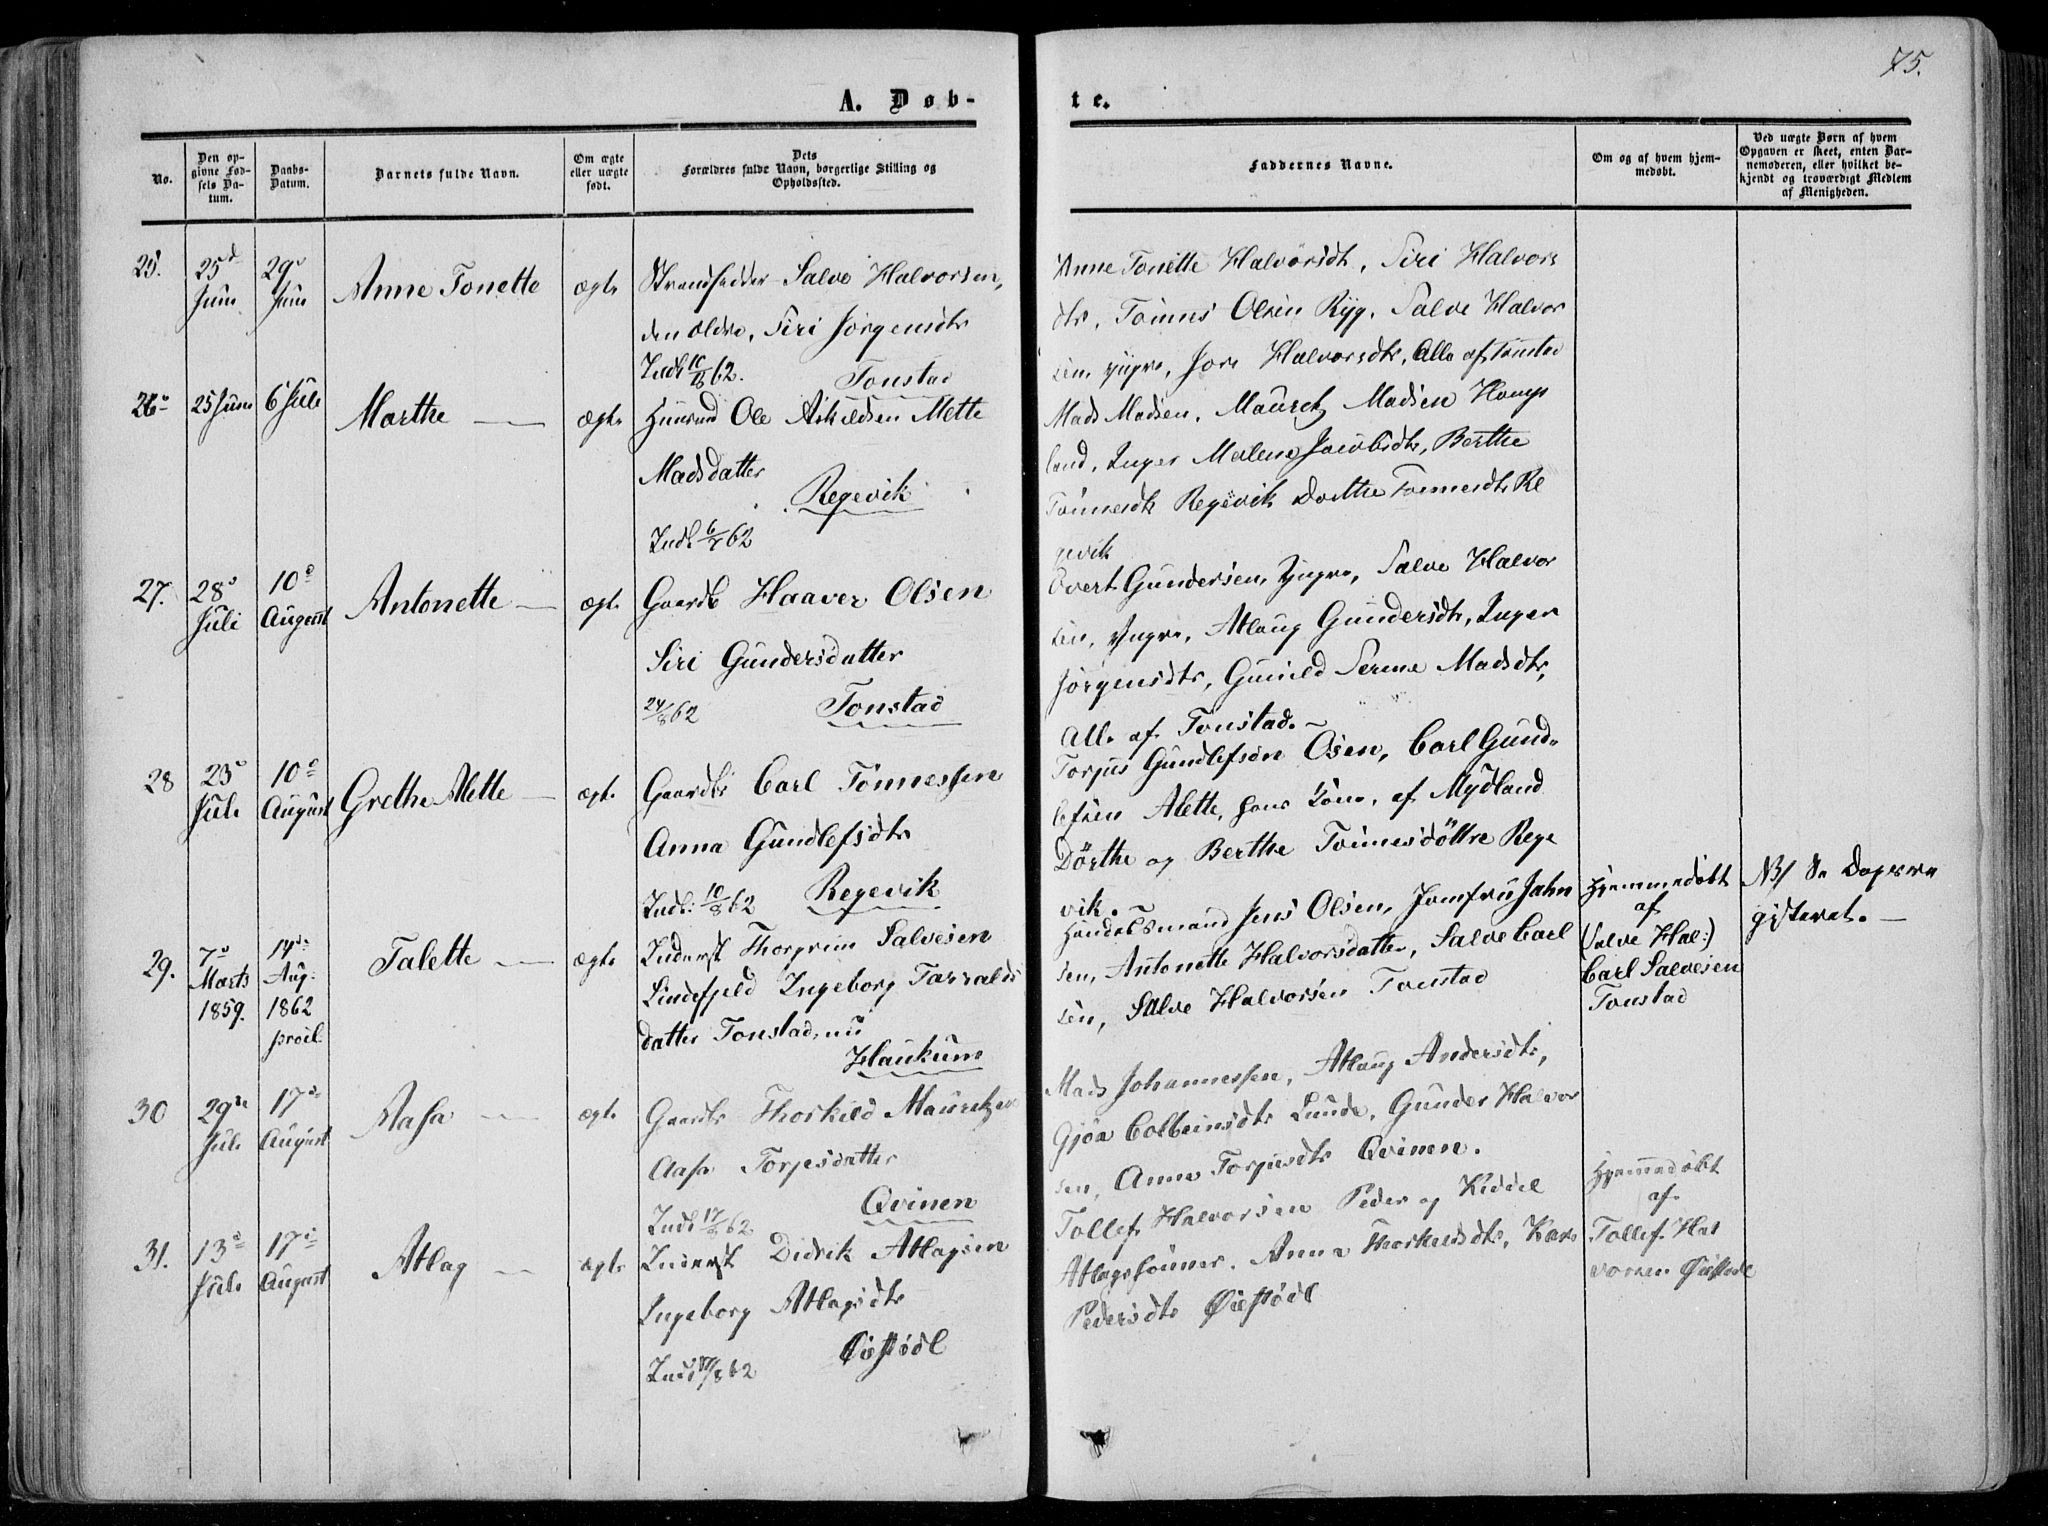 75.
A. Døb-
te.
No.
Den op-
givne Fød-
sels Da-
tum.
Daabs-
Datum.
Barnets fulde Navn.
Om ægte
eller uægte
født.
Dets
Forældres fulde Navn, borgerlige Stilling og
Opholdssted.
Faddernes Navne.
Om og af hvem hjem-
medøbt.
Ved uægte Børn af hvem
Opgaven er skeet, enten Bar-
nemoderen, eller hvilket be-
kjendt og troværdigt Medlem
af Menigheden.
25.
25d
Juni
29d
Juni
Anne Tonette
ægte
Strandsidder Salve Halvorsen,
den ældre, Siri Jørgensdtr
Indl 10/8 62. Tonstad
Anne Tonette Halvorsdt, Siri Halvors
dtr, Tönnes Olsen Ryg, Salve Halvor
sen, yngre, Halvorsdtr, Alle af Tonstad
26
25 Juni
6 Juli
Marthe
ægte
Huusmd Ole Askildsen Mette
Madsdatter
Regevik
Indl 6/7 62
Mads Madsen, Mauretz Madsen Houg
land, Inger Malene Jacobsdtr, Berthe
Tönnesdtr Regevik Dorthe Tönnesdtr Re
gevik
27.
28d
Juli
10d
August
Antonette
ægte
Gaardb Haaver Olsen
Siri Gundersdatter
24/8 62 Tonstad
Evert Gundersen, yngre, Salve Halvor
sen, Yngre, Atlaug Gundersdtr, Inger
Jörgensdtr, Gunild Serine Madsdtr,
Alle af Tonstad.
28
23d
Juli
10d
August
Grethe Alette
ægte
Gaardbr Carl Tönnessen
Anna Gundlefsdtr
Indl: 10/8 62 Regevik
Torjus Gundlefsön Osen, Carl Gund-
lefsen Alette, hans Kone, af Mydland
Dörthe og Berthe Tönnesdöttre Rege
vik.
29.
7d
Marts
1859.
14d
Aug:
1862
Talette
ægte
Inderst Thorgrim Salvesen
Lindefjeld Ingeborg Tarralds
datter Tonstad, nu
Haukum
Handelsmand Jens Olsen, Jomfru Jahn
sen, Antonette Halvorsdatter, Salve Carl
sen, Salve Halvorsen Tonstad
Hjemmedöbt
af
(Salve Hal:)
Carl Salvesen
Tonstad
NB
gisteret.
30
29de
Juli
17de
August
Aasa
ægte
Gaardbr Thorkild Mauretzen
Aasa Torjusdatter
Qvinen
Indl 17/8 62
Mads Johannessen, Atlaug Andersdtr,
Gjöa Colbeinsdtr Lunde, Gunder Halvor
sen, Anna Torjusdtr Qvinen.
31.
13d
Juli
17de
August
Atlag
ægte
Inderst Didrik Atlagsen
Ingeborg Atlagsdtr
Öiestödl
Indl 17/8 62
Tollef Halvorsen Peder og Kiddel
Atlagssönner, Anna Thorkildsdtr, Kari
Pedersdtr Öiestödl
Hjemmedöbt
af
Tollef Hal
vorsen Öiestödl